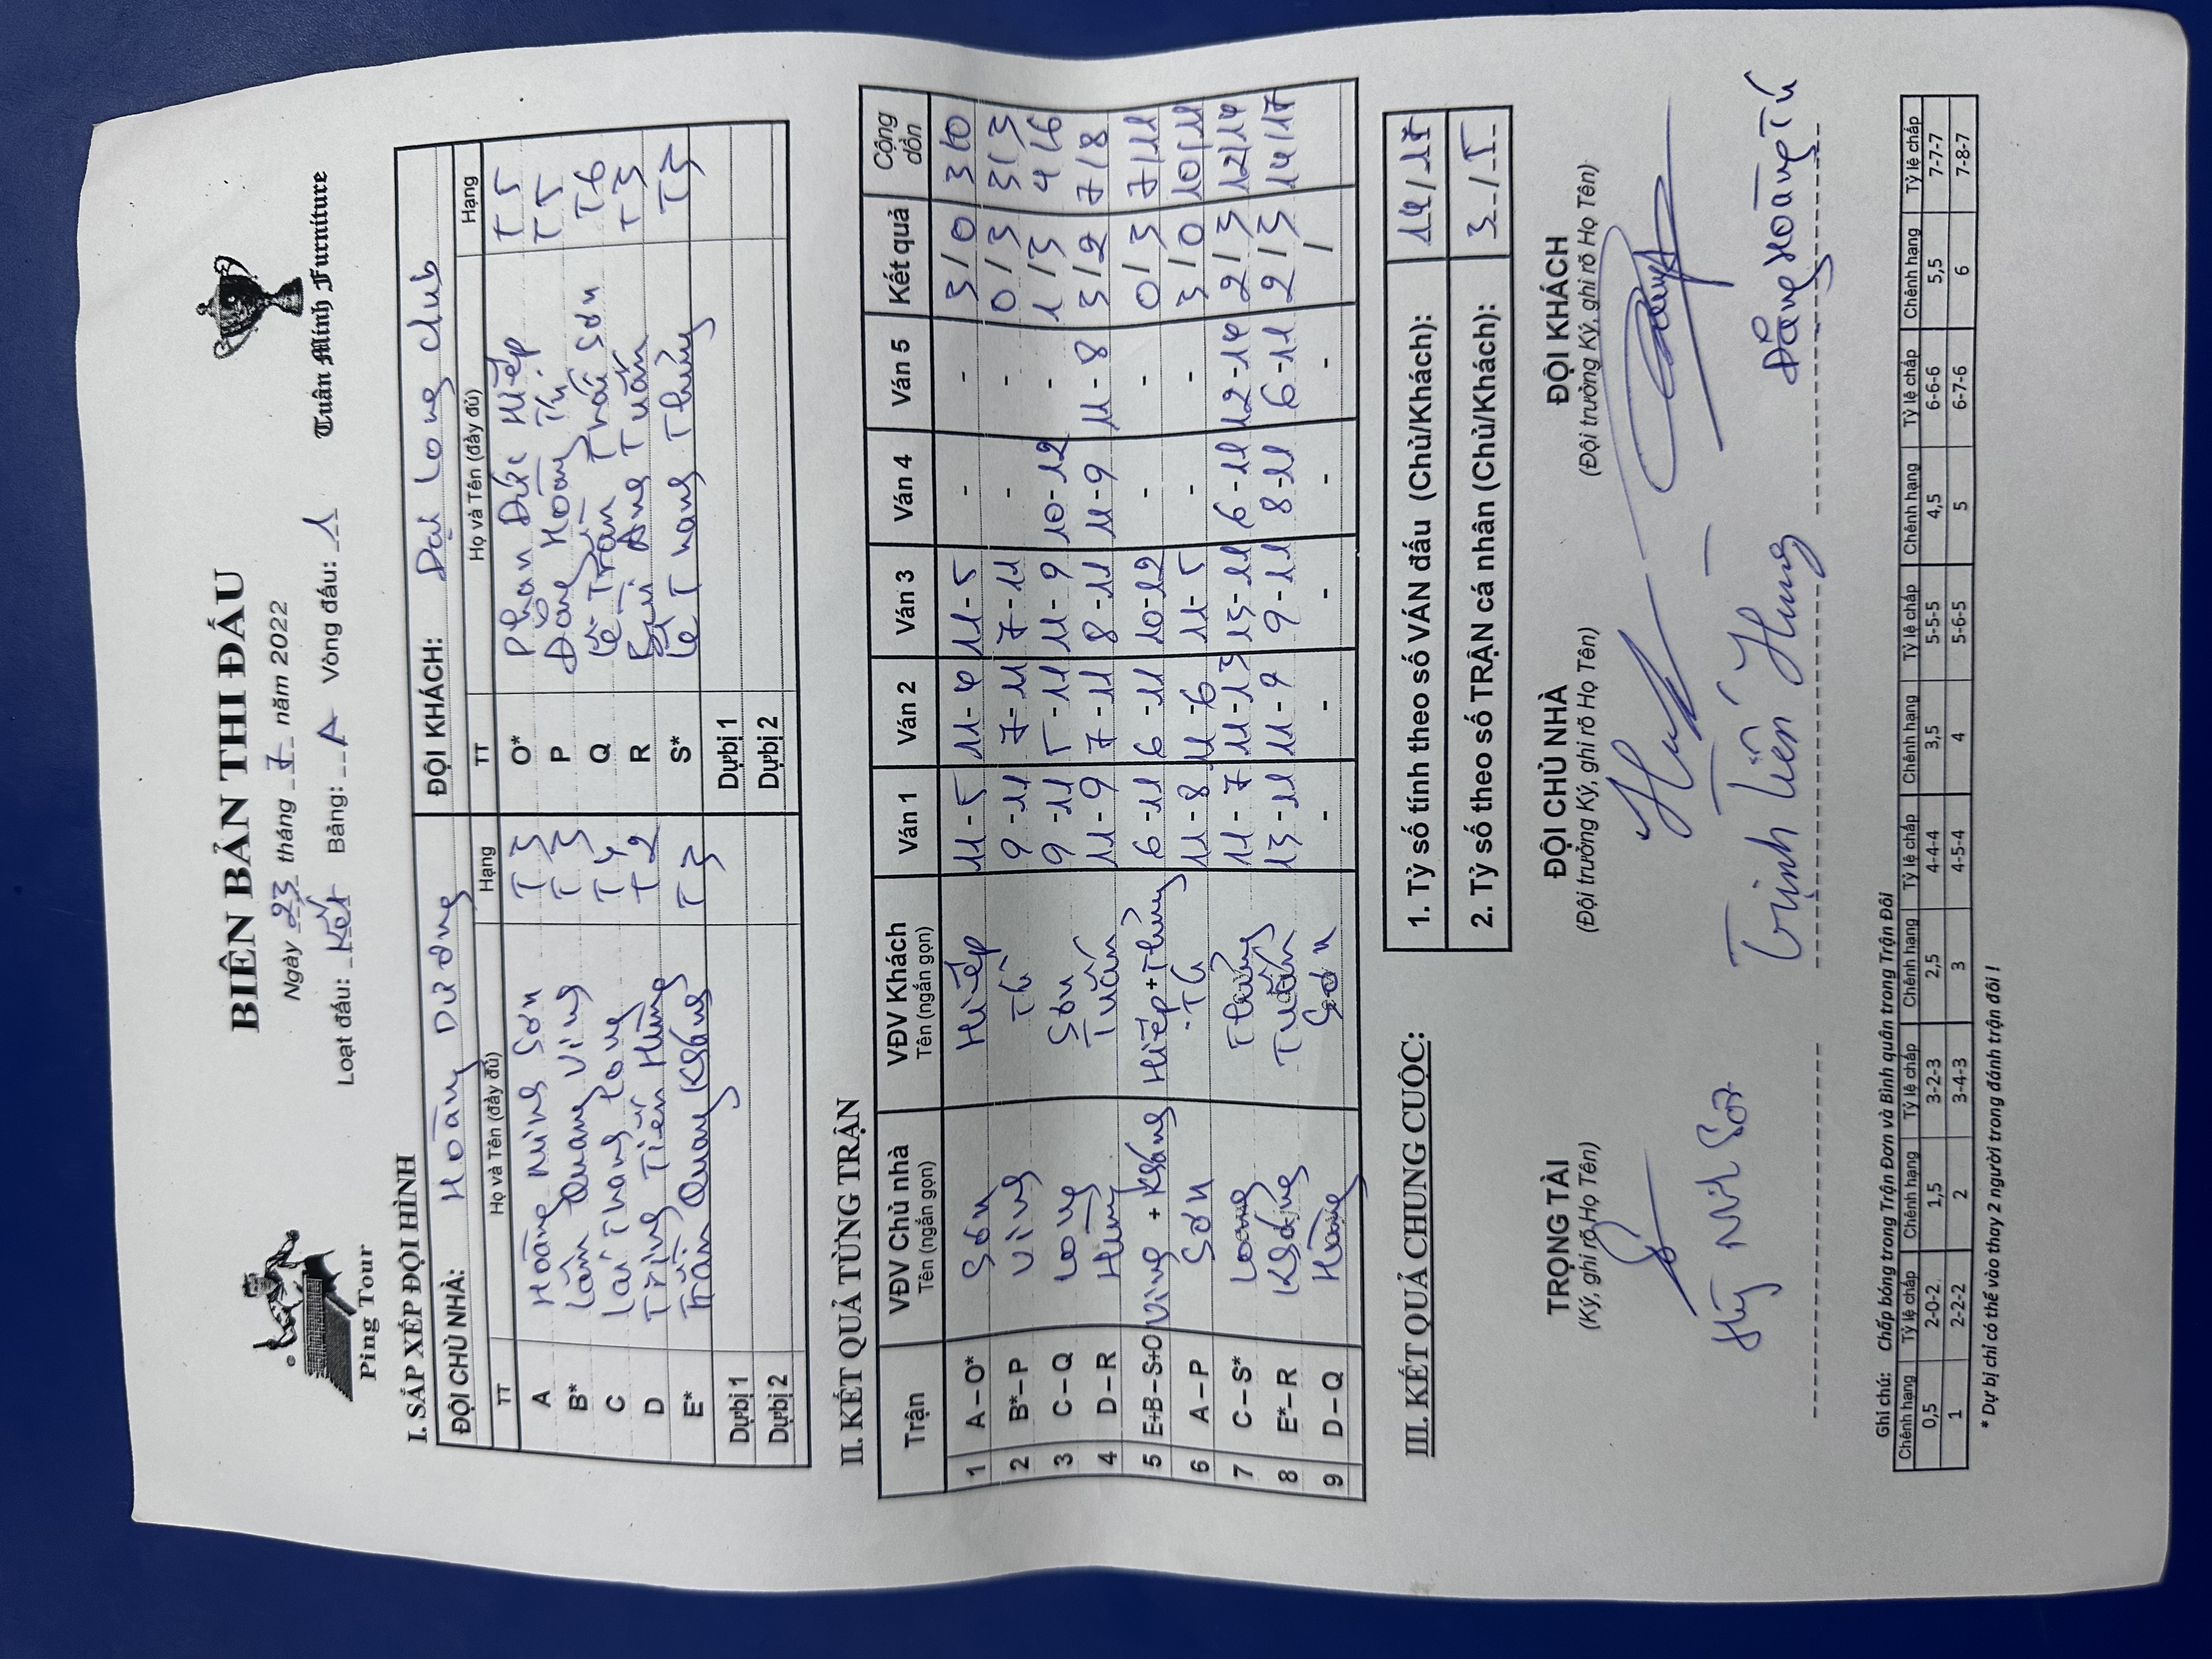 BIÊN BẢN THI ĐẤU
Ngày 23 tháng 7 năm 2022
Loạt đấu: Kết Bảng: A Vòng đấu: 1
Ping Tour
Tuân Minh Furniture
I. SẮP XẾP ĐỘI HÌNH
ĐỘI CHỦ NHÀ: Hoàng Dương ĐỘI KHÁCH: Đại Long club
TT Họ và Tên (đầy đủ) Hạng TT Họ và Tên (đầy đủ) Hạng
A Hoàng Minh Sơn T3 O* Phan Đức Hiếp T5
B* Lân Quang Vinh T3 P Đặng Hoàng Tú T5
C Lại Thang Long T4 Q Lê Trần Thái Sơn T6
D Trịnh Tiến Hùng T2 R Bùi Anh Tuấn T3
E* Trần Quang Kháng T3 S* Lê Thang Thủy T3
Dự bị 1 Dự bị 1
Dự bị 2 Dự bị 2
II. KẾT QUẢ TỪNG TRẬN
Trận VĐV Chủ nhà VĐV Khách Ván 1 Ván 2 Ván 3 Ván 4 Ván 5 Kết quả Cộng dồn
Tên (ngắn gọn) Tên (ngắn gọn)
1 A – O* Sơn Hiếp 11-5 11-4 11-5 - - 3/0 3/0
2 B* – P Vinh Tú 9-11 7-11 7-11 - - 0/3 3/3
3 C – Q Long Sơn 9-11 5-11 11-9 10-12 - 1/3 4/6
4 D – R Hùng Tuấn 11-9 7-11 8-11 11-9 11-8 3/2 7/8
5 E+B – S+O Vinh + Kháng Hiếp + Thủy 6-11 6-11 10-12 - - 0/3 7/11
6 A – P Sơn Tú 11-8 11-6 11-5 - - 3/0 10/11
7 C – S* Long Thủy 11-7 11-13 13-11 6-11 12-14 2/3 12/14
8 E* – R Kháng Tuấn 13-11 11-9 9-11 8-11 6-11 2/3 14/17
9 D – Q Hùng Sơn - - - - - /
III. KẾT QUẢ CHUNG CUỘC:
1. Tỷ số tính theo số VÁN đấu (Chủ/Khách): 14/17
2. Tỷ số theo số TRẬN cá nhân (Chủ/Khách): 3/5
TRỌNG TÀI ĐỘI CHỦ NHÀ ĐỘI KHÁCH
(Ký, ghi rõ Họ Tên) (Đội trưởng Ký, ghi rõ Họ Tên) (Đội trưởng Ký, ghi rõ Họ Tên)
Trịnh Tiến Hùng Đặng Hoàng Tú
Ghi chú: Chấp bóng trong Trận Đơn và Bình quân trong Trận Đôi
Chênh hạng Tỷ lệ chấp Chênh hạng Tỷ lệ chấp Chênh hạng Tỷ lệ chấp Chênh hạng Tỷ lệ chấp Chênh hạng Tỷ lệ chấp Chênh hạng Tỷ lệ chấp
0,5 2-0-2 1,5 3-2-3 2,5 4-4-4 3,5 5-5-5 4,5 6-6-6 5,5 7-7-7
1 2-2-2 2 3-4-3 3 4-5-4 4 5-6-5 5 6-7-6 6 7-8-7
* Dự bị chỉ có thể vào thay 2 người trong đánh trận đôi !